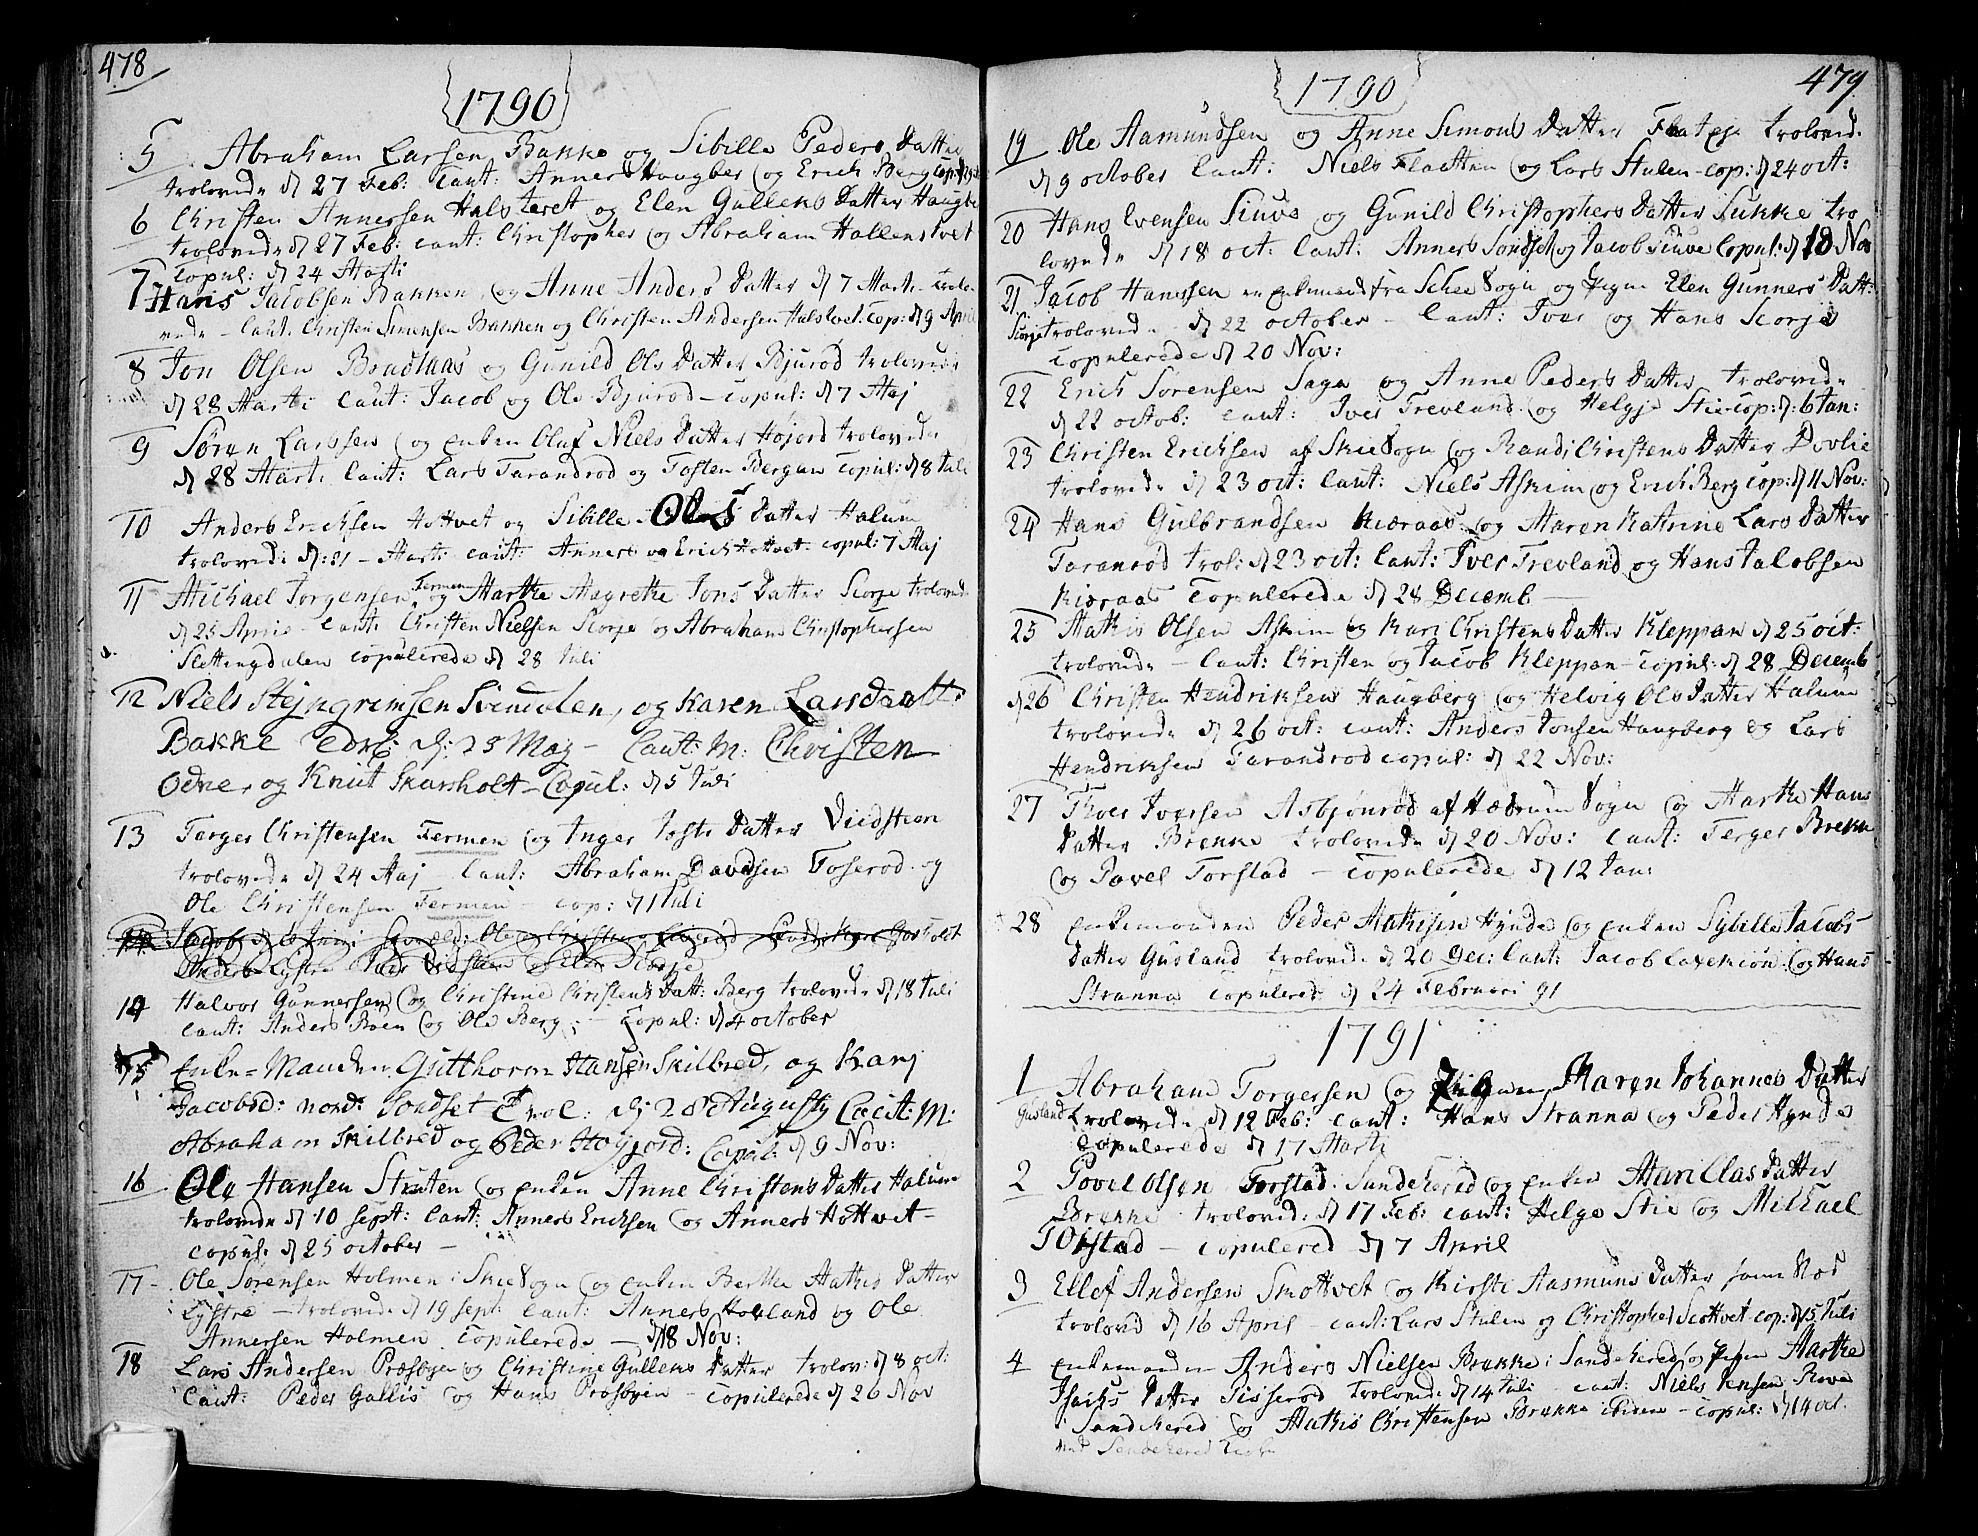 478
1790
5 Abraham Larsen Bakke og Sibille Peders Datter
trolovede d 27 Feb: Caut: Anners Haugber og Erich Berg cop:
6 Christen Annersen Halstvet og Elen Gullens Datter Haugbe
trolovede d 27 Feb: caut: Christopher og Abraham Hallenstvet
Copul: d 24 Marti
7 Hans Jacobsen Bakken og Anne Anders Datter d 7 Marti trolo
vede – Caut. Christen Simensen Bakken og Christen Andersen Halstvet. Cop: d 9 April
8 Jon Olsen Braataas og Gunild Ols Datter Bjurød trolovede
d 28 Marti Caut: Jacob og Ole Bjurød – copul: d 7 Maj
9 Søren Larssen og Enken Oluf Niels Datter Højord trolovede
d 28 Marti Caut: Lars Tarandrød og Tosten Bergan copul: d 8 Juli
10 Anders Ericksen Hotvet og Sibille Ols Datter Halum
trolovede d: 21 – Marti caut: Anners og Erich Hotvet copul: 7 Maj
11 Michael Jørgensen Fermen og Marthe Magrethe Jons Datter Scorje trolovede
d 25 April – Caut: Christen Nielsen Scorje og Abraham Christophersen
Slettingdalen copulerede d 28 Juli
12 Niels Stejngrimsen Svendsten, og Karen Larsdaatt:
Bakke Trol: d: 25 Maj – Caut: M: Christen
Odne, og Knut Skarsholt – Copul: d 5 Juli
13 Torger Christensen Fermen og Inger Josts Datter Viidsteen
trolovede d 24 Maj – Caut: Abraham Davidsen Foserød og
Ole Christensen Fermen – cop: d 1 Juli
14 Halvor Gunnersen og Christine Christens Datt: Berg trolovede d 18 Juli
Caut: Anders Roen og Ole Berg – Copul: d 4 october
15 Enke-Manden Gutthorm Hansen Skilbred, og Karj
Jacobsd: nord: Sondset Trol: d: 28 Augusty Caut: M:
Abraham Skilbred og Peder Høyjord: Copul: d 9 Nov:
16 Ole Hansen Struten og enken Anne Christens Datter Halum
trolovede d 10 sept: Caut: Anners Ericksen og Anners Hottvet –
copul: d 25 october –
17 Ole Sørensen Holmen i Skie Sogn og enken Berthe Mathis Datter
Lystre – trolovede d 19 sept: Caut: Anners Hovland og Ole
Annersen Holmen copulerede – d 18 Nov:
18 Lars Andersen Præsbyen og Christine Gullens Datter trolov: d 8 oct:
Caut: Peder Gallis og Hans Præsbyen – copulerede d 26 Nov
479
1790
19 Ole Aamundsen og Anne Simons Datter Flateje trolovede
d 9 october Caut: Niels Flaatten og Lars Stulen – cop: d 24 oct:
20 Hans Evensen Siuve og Gunild Christophers Datter Sukke tro
lovede d 18 oct: Caut: Anners Sondset og Jacob Siuve Copul: d 18 Nov
21 Jacob Hanssen en Enkemand fra Schee Sogn og Pigen Elen Gunners Datt:
Scorje trolovede d 22 october – Caut: Iver og Hans Scorje
copulerede d 20 Nov:
22 Erich Sørensen Saga og Anne Peders Datter trolovede
d 22 octob: Caut: Iver Trevland og Helgje Stie – cop: d: 6 Jan:
23 Christen Ericksen af Skie Sogn og Randi Christens Datter Dovlie
trolovede d 23 oct: Caut: Niels Askim og Erich Berg cop: d 11 Nov:
24 Hans Gulbrandsen Kiæraas og Maren Katrine Lars Datter
Taranrød trol: d 23 oct: Caut: Iver Trevland og Hans Jalobsen
Kiæraas Copulerede d 28 Decemb –
25 Mathis Olsen Askim og Kari Christens Datter Kleppan d 25 oct:
trolovede – Caut: Christen og Jacob Kleppan – copul: d 28 Decemb
26 Christen Hendriksen Haugberg og Helvig Ols Datter Halum
trolovede d 26 oct: caut: Anders Jonsen Haugberg og Lars
Hendriksen Tarandrød copul: d 22 Nov:
27 Thoer Iversen Asbjønrød af Hædrum Sogn og Marthe Hans
Datter Brekke trolovede d 20 Nov: Caut: Torger Brekke
og Povel Torstad – copulerede d 12 Jan:
28 Enkemanden Peder Mathisen Hynde og enken Sybille Jacobs
Datter Gusland trolovede d 20 Dec: Caut: Jacob Lavekiøn og Hans
Stranna copulered d 24 Februari 91
1791
1 Abraham Torgersen og Pigen Maren Johannes Datter
Gusland trolovede d 12 Feb: caut: Hans Stranna og Peder Hynde
copulerede d 17 Marti
2 Povel Olsen Torstad Sandeherred og enken Mari Clas Datter
Brekke trolovede d 17 Feb: caut: Helge Stie og Michael
Torstad – copulered d 7 April
3 Ellef Andersen Skottvet og Kirsti Aasmuns Datter som Nos
trolovd d 16 April – caut: Lars Stulen og Christopher Scottvet cop: d 15 Juli
4 enkemanden Anders Nielsen Brekke i Sandeherred og Pigen Marthe
Isachs Datter Sisserød trolovede d 14 Juli – caut: Niels Jensen Rova
i Sandeherred og Mathis Christensen Brekke – copul: d 14 oct.
ved Sandeherred Kirke